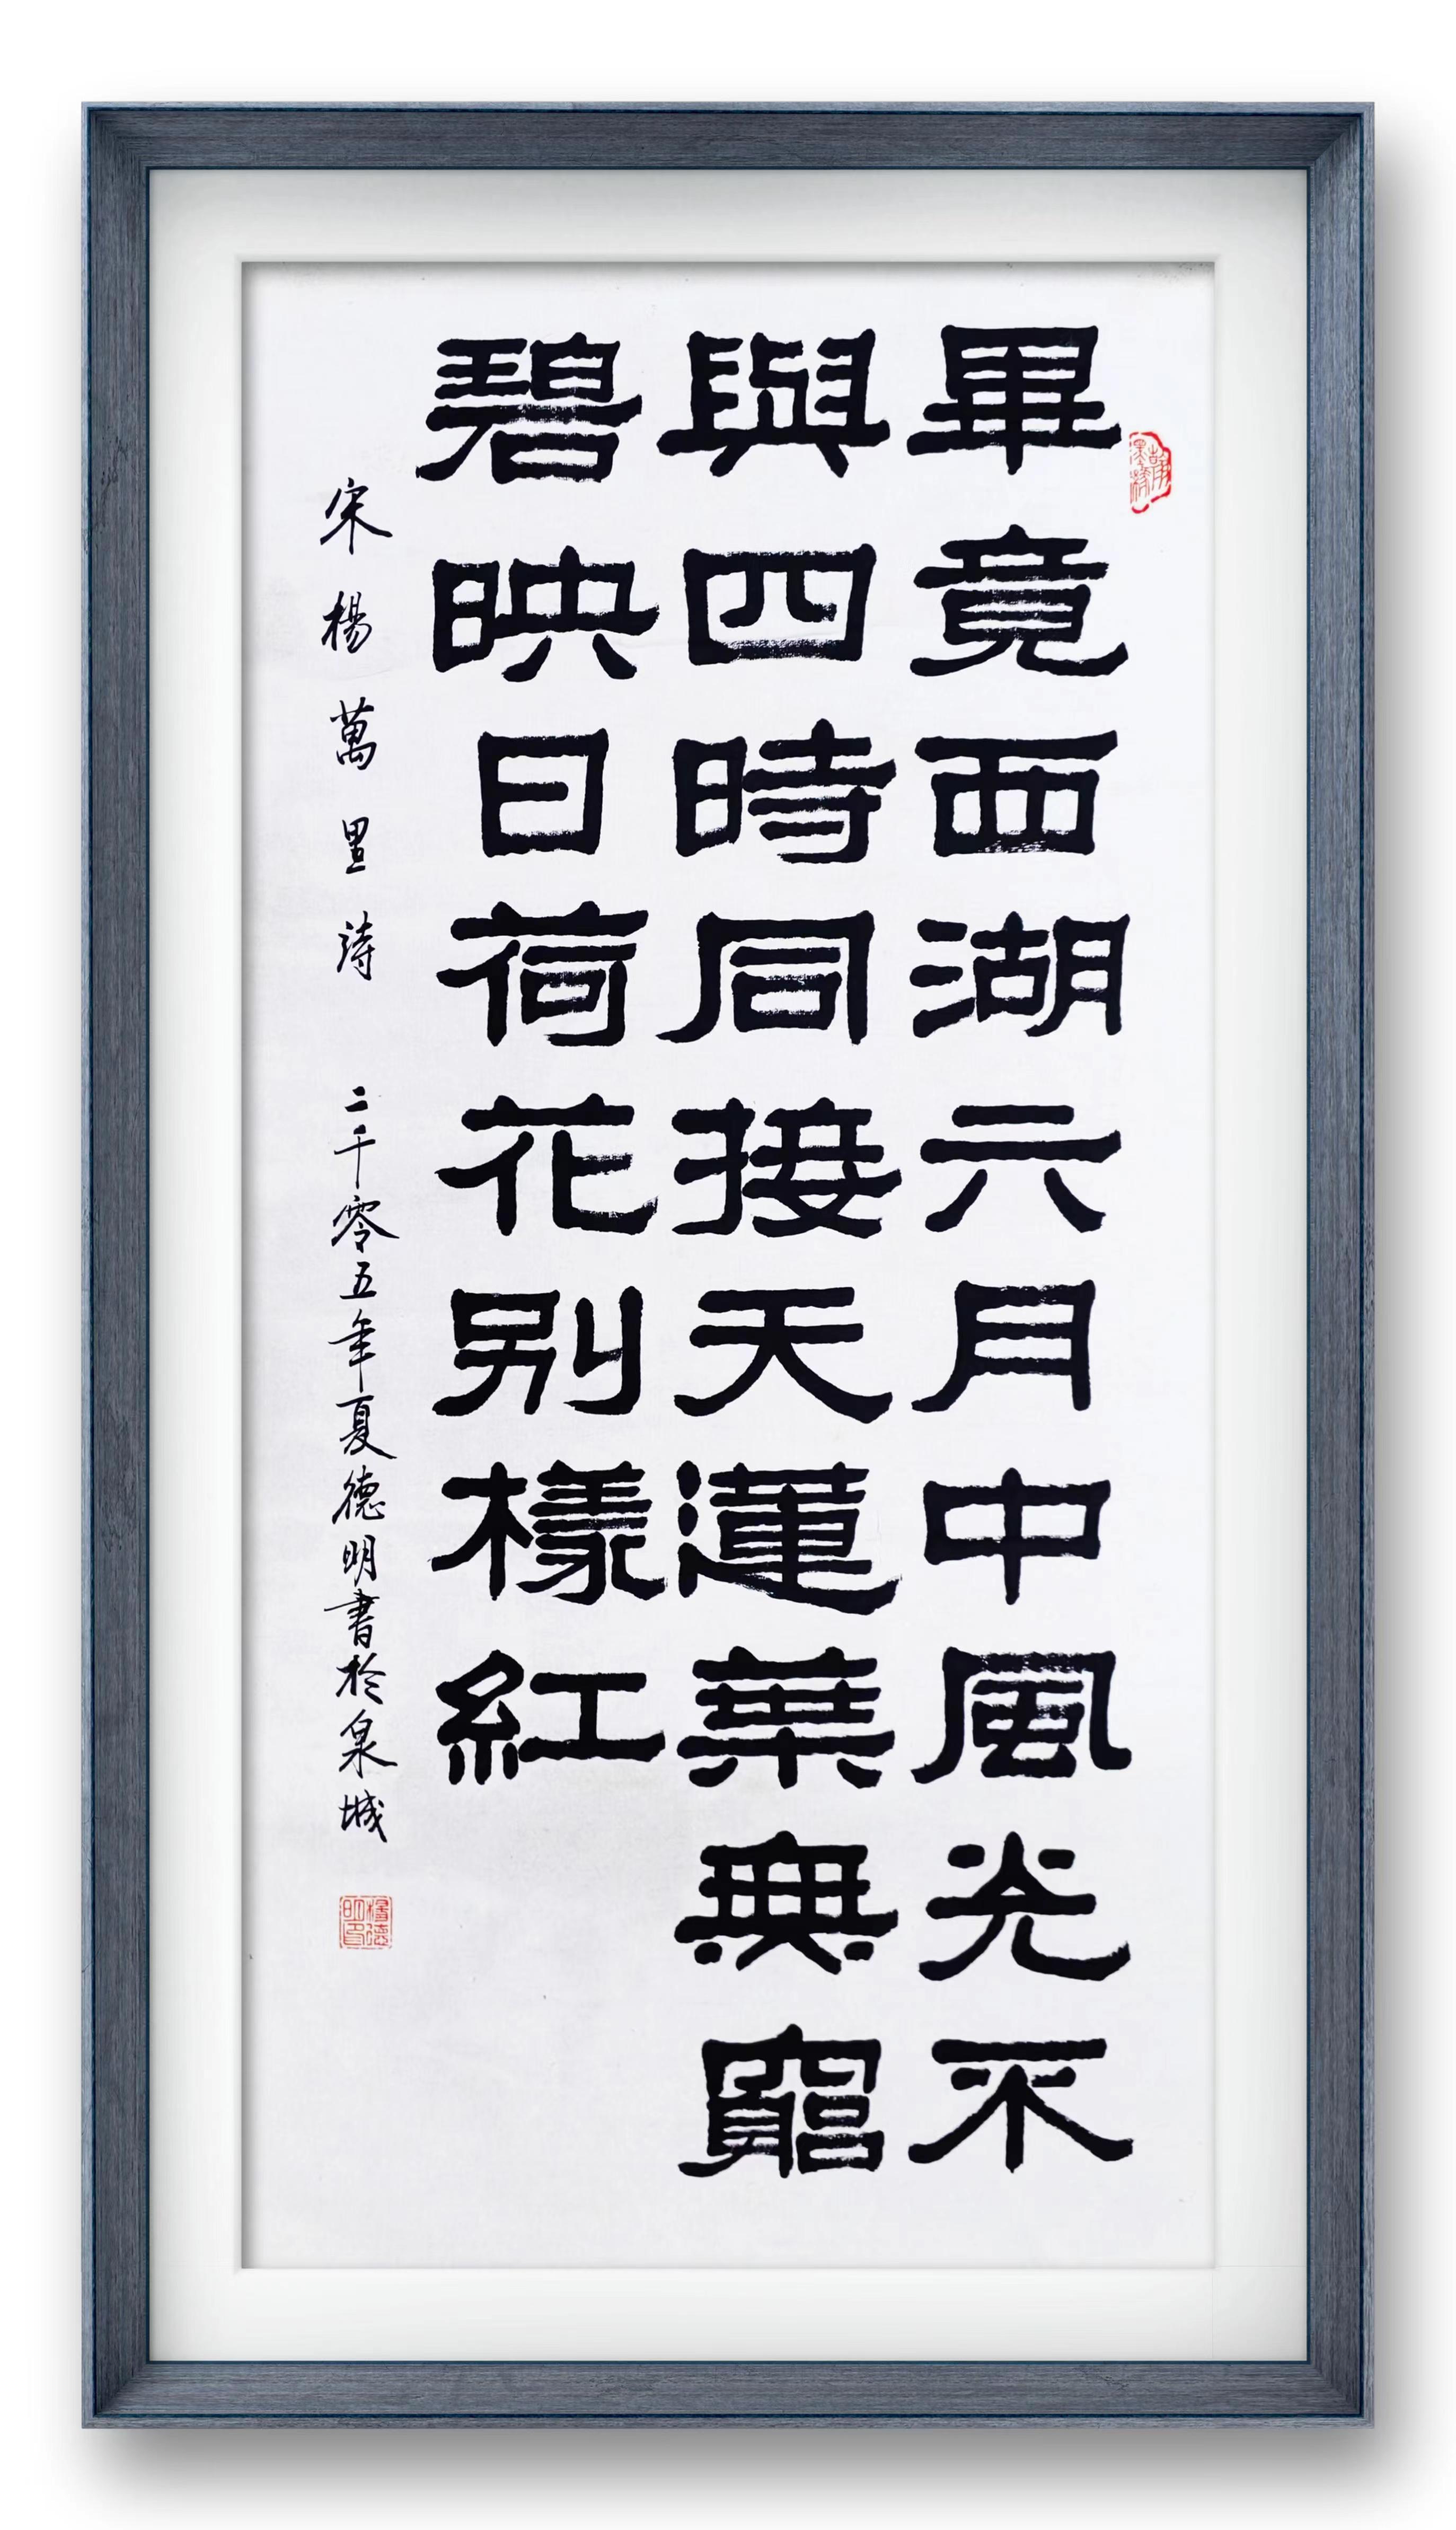 畢竟西湖六月中風光不
與四時同接天蓮葉無窮
碧映日荷花别樣紅
宋楊萬里詩 二千零五年夏德明書於泉城
楊德明印